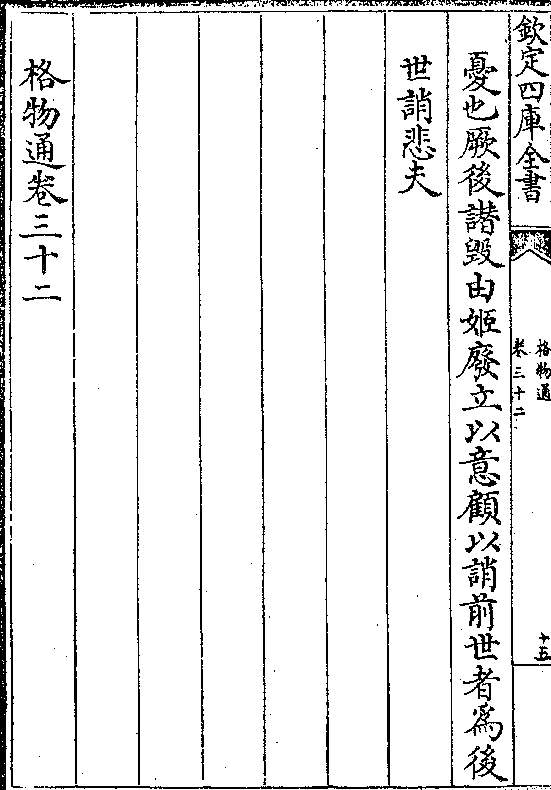 欽定四庫全書
格物通
卷三十二
十五
憂也厥後譖毀由姬廢立以意顧以誚前世者為後
世誚悲夫
格物通卷三十二